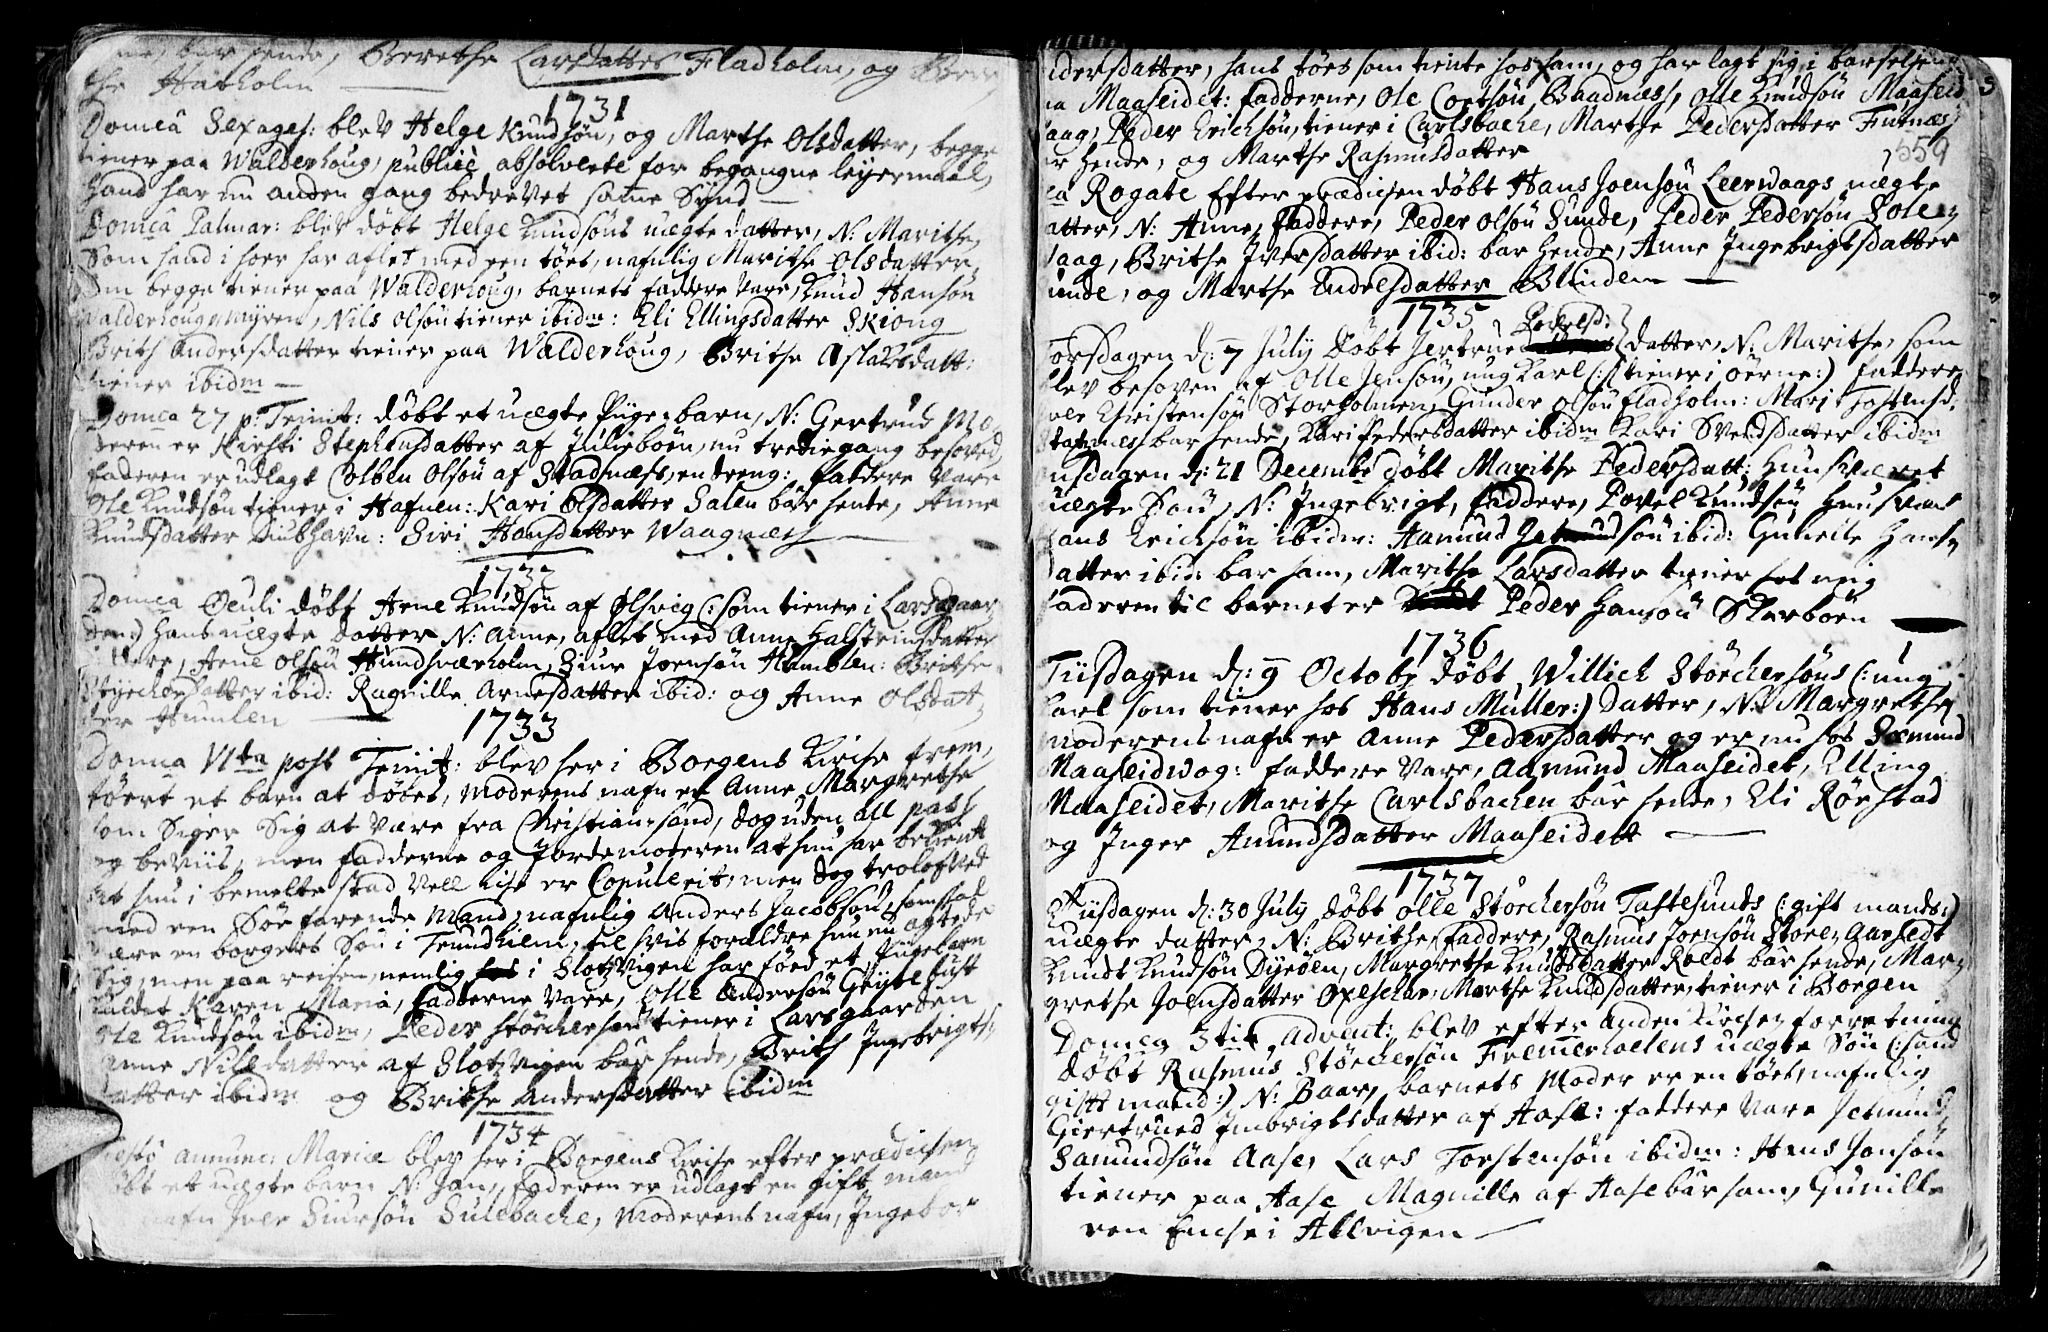 bar hende, Berethe Larsdatter Fladholm, og Bere
the Hatholm
1731
Domca Sexages: blev Helge Knudsøn, og Marthe Olsdatter, begge
tiener paa Walderhoug, publice absolverte for begangne leÿermaal,
hand har nu anden gang bedrevet samme Synd
Domca Palmar: blev døbt Helge Knudsøns uægte datter, N: Marithe,
Som hand i hoer har aflet med een tøes, nafnlig Marithe Olsdatter,
Som begge tiener paa Walderhoug, barnets faddere vare, Knud Hansøn
Walderhougmÿren, Nils Olsøn tiener ibidm: Eli Ellingsdatter Skiong
Brith Andersdatter tiener paa Walderhoug, Brithe Aslaksdatt:
tiener ibidm
Domca 27 p. Trinit: døbt et uægte Piige-barn, N: Gertrud Mo,
deren er Kirsti Stephensdatter af Julieboen, nu tredie gang besoved,
faderen er udlagt Colben Olsøn af Stadnæss, en dreng: faddere vare
Ole Knudsøn tiener i Hafnen: Kari Olsdatter Salen bar hende, Anne
Knudsdatter Diubhavn: Siri Hansdatter Waagnæss
1732
Domca Oculi døbt Arne Knudsøn af Ølsvig (: som tiener i Larsgaar
den:) hans uægte datter N: Anne, aflet med Anne Halsteinsdatter
, Arne Olsøn Hundsværholm, Siur Joensøn Humblen: Brithe
datter ibid: Ragnille Arnesdatter ibid: og Anne Olsdat
ter Humlen
1733
Domca VIta post Trinit: blev her i Borgens Kirke frem,
ført et barn at døbes, Moderens nafn er Anne Margrethe
som Siger Sig at være fra Christiansand, dog uden all pass
og beviis, men fadderne og Jordemoderen at hun har bekient
at hun i bemelte stad vell icke er Copulerit, men dog trolofved
med een Søefarende Mand, nafnlig Anders Jacobsøn, som skal
være en borgers Søn i Trundhiem, til hvis forældre hun nu agtede
Sig, men paa reisen, nemlig i Slotzvigen har fød et Pigebarn
kaldet Karen Maria, fadderne vare, Olle Andersøn
Ole Knudsøn ibidm, Peder Størchersøn tiener i Larsgaarden
Anne Nilsdatter af Slotzvigen bar hende, Brith Ingebrigts,
datter ibidm og Brithe Andersdatter ibidm
1734
Festo annunc: Mariæ blev her i Borgens Kirke efter prædicken
døbt et uægte barn N: Jan, faderen er udlagt en gift mand
nafn Iver Siursøn Sulebache, Moderens nafn, Ingebor
idersdatter, hans tøes som tiente hos ham, og har lagt sig i barselseng
paa Maaseidet: fadderne, Ole Cortsøn Baadnæss, Olle Knudsøn Maaseid
vaag, Peder Erichsøn, tiener i Carlsbache, Marthe Pedersdatter Furnæs
bar hende, og Marthe Rasmusdatter
559
ca Rogate efter prædicken døbt Hans Joensøn Leerwaags uægte
datter, N: Anne, faddere, Peder Olsøn Sunde, Peder Pedersøn Sole,
vaag, Brithe Iversdatter ibid: bar hende, Anne Ingebrigtsdatter
Sunde, og Marthe Endresdatter Blinden
1735
Torsdagen d: 7 Julÿ døbt Jertrue Povelsd: datter, N: Marithe, som
blev besoven af Olle Jensøn, ung Karl (: tiener i øerne:) faddere
Ole Christensøn Storholmen, Gunder Olsøn Fladholm: Mari Tostensd.
Statnæs bar hende, Kari Pedersdatter ibidm Kari Svendsdatter ibidm
Onsdagen d: 21 Decembr døbt Marithe Pedersdatt: Hunskaaret
uægte Søn, N: Ingebrigt, faddere, Povel Knudsøn Hunskaar
Hans Erichsøn ibidm: Aamund Jetmundsøn ibid: Gunille Hans,
datter ibid: bar ham, Marithe Larsdatter tiener hos mig
faderen til barnet er Peder Hansøn Skarboen
1736
Tiisdagen d: 9 Octobr døbt Willich Størchersøns (: ung
karl som tiener hos Hans Müller:) datter, N: Margrethe,
moderens nafn er Anne Pedersdatter og er nu hos Sæmund
Maaseidvog: faddere vare, Aamund Maaseidet, Elling
Maaseidet, Marithe Carlsbachen bar hende, Eli Rørstad
og Inger Amundsdatter Maaseidett
1737
Tiisdagen d: 30 Julÿ døbt Olle Størchersøn Taftesunds (: gift mands:)
uægte datter, N: Brithe, faddere, Rasmus Joensøn Store, Aarsedt
Knudt Knudsøn Dyrøen, Margrethe Knudsdatter Roldt bar hende, Mar,
grethe Joensdatter Oxeschar, Marthe Knudsdatter, tiener i Borgen
Domca 3tia Advent: blev efter anden kircke, forretning
døbt Rasmus Størchersøn Fremerholens uægte Søn (: hand
gift mand:) N: Baar, barnets Moder er en tøes, nafnlig
Giertrued Imbrigtsdatter af Aase: faddere vare Jetmund
Samundsøn Aase, Lars Torstensøn ibidm: Hans Jonsøn
tiener paa Aase Magnille af Aase bar ham, Gunille
ren Encke i Allvigen